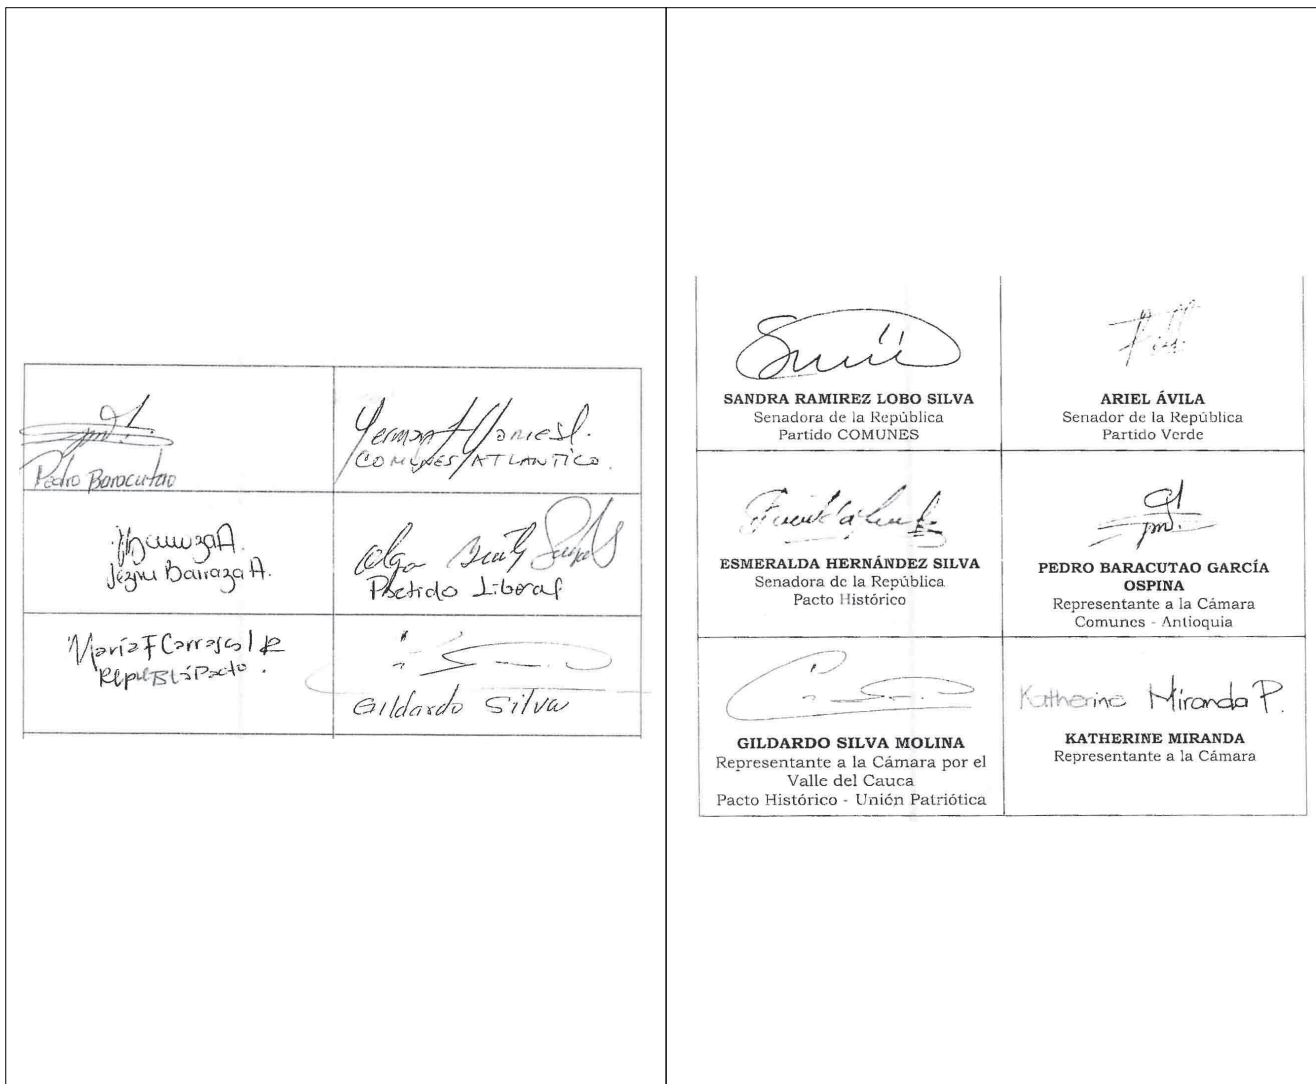 Pedro Baracutao
COMUNES/ATLANTICO.
Jezmi Barraza A.
Partido Liberal
María F Carrascal R
Gildardo Silva
SANDRA RAMIREZ LOBO SILVA
Senadora de la República
Partido COMUNES
ARIEL ÁVILA
Senador de la República
Partido Verde
ESMERALDA HERNÁNDEZ SILVA
Senadora de la República
Pacto Histórico
PEDRO BARACUTAO GARCÍA
OSPINA
Representante a la Cámara
Comunes - Antioquia
GILDARDO SILVA MOLINA
Representante a la Cámara por el
Valle del Cauca
Pacto Histórico - Unión Patriótica
Katherine Miranda P.
KATHERINE MIRANDA
Representante a la Cámara